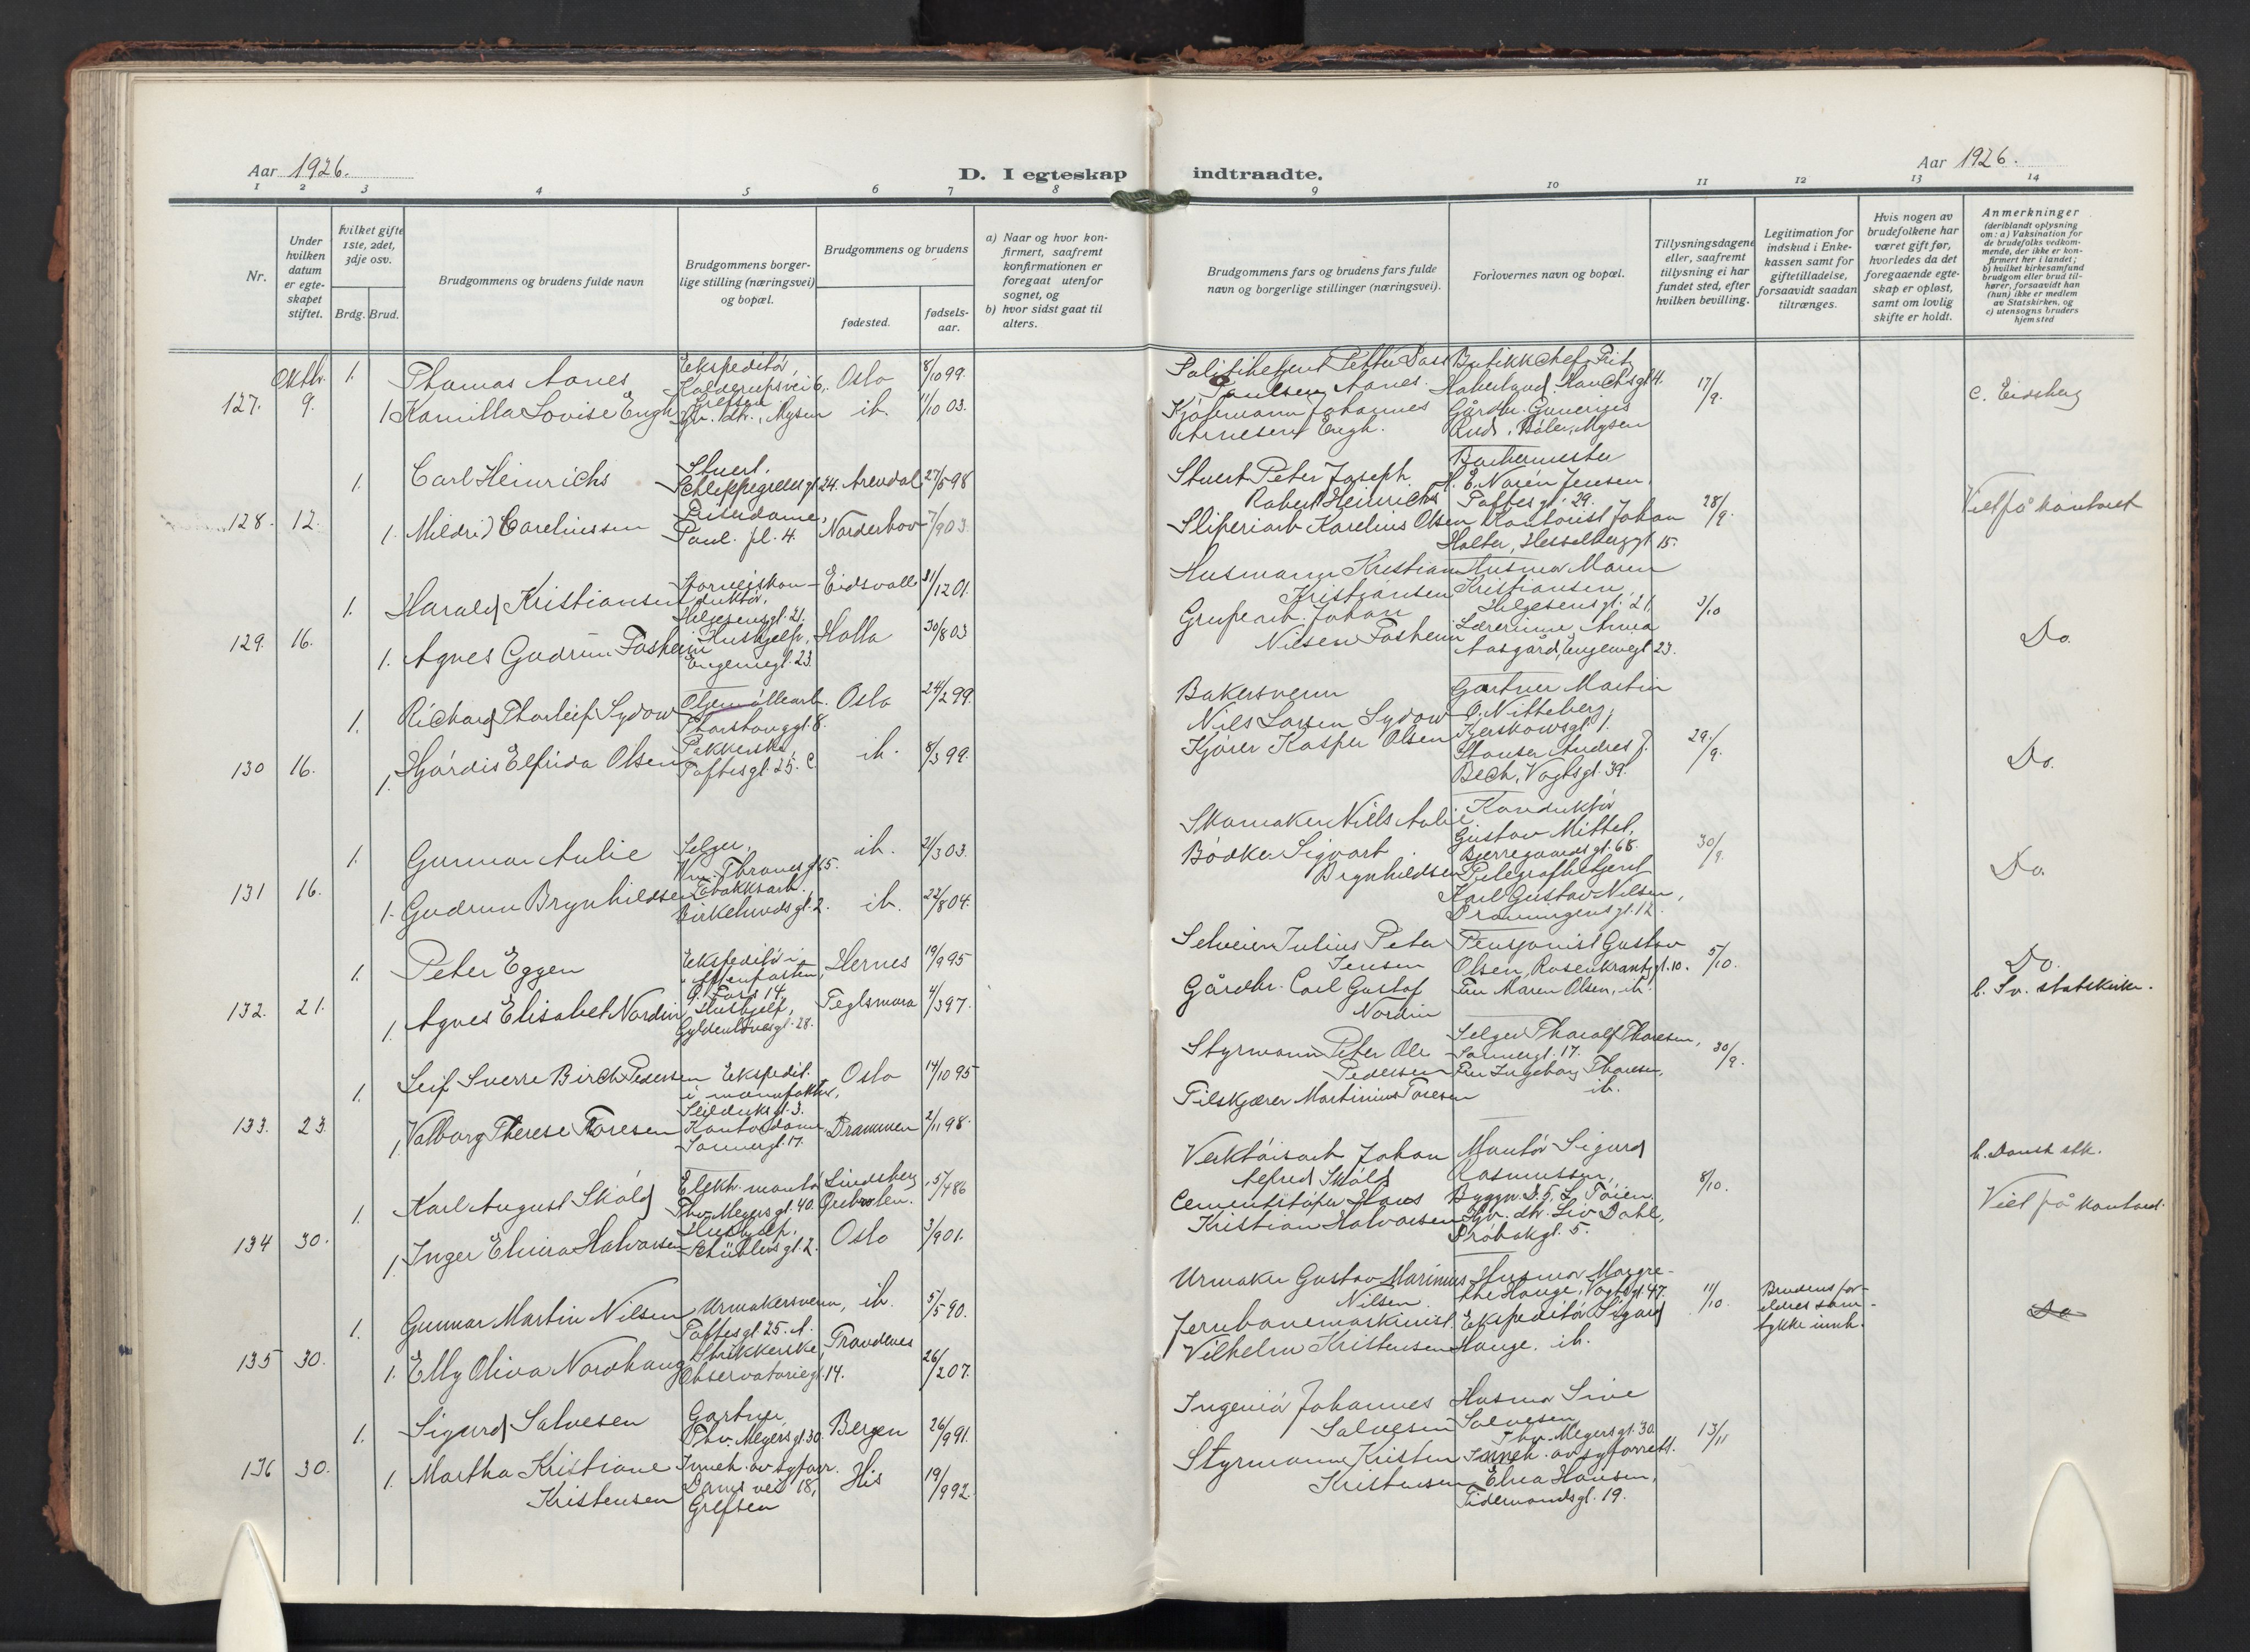 Aar 1926.
D. I egteskap indtraadte.
Aar 1926.
1 2 3 4 5 6 7 8 9 10 11 12 13 14
Nr.
Under hvilken datum er egteskapet stiftet.
Hvilket gifte 1ste, 2det, 3dje osv.
Brdg. Brud.
Brudgommens og brudens fulde navn
Brudgommens borgerlige stilling (næringsvei) og bopæl.
Brudgommens og brudens
fødested.
fødselsaar.
a) Naar og hvor konfirmert, saafremt konfirmationen er foregaat utenfor sognet, og
b) hvor sidst gaat til alters.
Brudgommens fars og brudens fars fulde navn og borgerlige stillinger (næringsvei).
Forlovernes navn og bopæl.
Tillysningsdagene eller, saafremt tillysning ei har fundet sted, efter hvilken bevilling.
Legitimation for indskud i Enkekassen samt for giftetilladelse, forsaavidt saadan tiltrænges.
Hvis nogen av brudefolkene har været gift før, hvorledes da det foregaaende egteskap er opløst, samt om lovlig skifte er holdt.
Anmerkninger
(deriblandt oplysning om: a) Vaksination for de brudefolks vedkommende, der ikke er konfirmert her i landet; b) hvilket kirkesamfund brudgom eller brud tilhører, forsaavidt han (hun) ikke er medlem av Statskirken, og c) utensogns bruders hjemsted
Oktbr.
127. 9.
1. Thomas Aanes
Ekspeditør,
Kalderupsvei 6,
Grefsen
Oslo 8/10 99.
Politibetjent Petter Dass
Paulsen Aanes.
Butikkchef Fritz
Haberland, Hauchsgt. 4.
17/9.
c. Eidsberg
1. Kamilla Lovise Engh
Gbr. dtr., Mysen
ib. 11/10 03.
Kjøbmann Johannes
Arnesen Engh.
Gårdbr. Gunerius
Rud, Båler, Mysen
128. 12.
1. Carl Heinrichs
Stuert.
Schleppegrellsgt. 24.
Arendal 27/5 98
Stuert Peter Joseph
Robert Heinrichs
Barbermester
H. E. Norén Jensen,
Toftesgt. 29.
28/9.
Viet på kontoret
1. Mildrid Careliussen
Disedame,
Paul. pl. 4.
Norderhov 7/9 03.
Sliperiarb. Karelius Olsen
Kontorist Johan
Holter, Hesselberggt. 15.
129. 16.
1. Harald Kristiansen
Sporveiskonduktør,
Helgesensgt. 21.
Eidsvoll 31/12 01.
Husmann Kristian
Kristiansen
Husmor Maren
Kristiansen,
Helgesensgt. 21.
3/10
Do.
1. Agnes Gudrun Fosheim
Hushjelp,
Eugeniegt. 23.
Holla 30/8 03
Grubearb. Johan
Nilsen Fosheim
Lærerinne Anna
Aasgård, Eugeniegt 23.
130 16.
1. Richard Thorleif Sydow
Oljemøllearb.
Thorshauggt. 8.
Oslo 24/2 99.
Bakersvenn
Nils Larsen Sydow
Gartner Martin
O. Nitteberg,
Kierskowsgt. 1.
29./9.
Do.
1. Hjørdis Elfrida Olsen
Pakkerske
Toftesgt. 25. C
ib. 8/3 99.
Kjører Kasper Olsen
Stanser Andres J.
Bech, Vogtsgt. 39.
131 16.
1. Gunnar Aulie
Selger,
Mrc. Thranesgt. 65.
ib. 21/3 03.
Skomaker Nills Aulie
Konduktør
Gustav Mittet,
Bjerregaardsgt. 68.
30/9.
Do.
1. Gudrun Brynhildsen
Tobakksarb.
Birkelundsgt. 2.
ib. 22/8 04.
Bødker Sigvart
Brynhildsen
Telegrafbetjent
Karl Gustav Nilsen,
Dronningensgt. 12.
132. 21.
1. Peter Eggen
Ekspeditør i
"Aftenposten",
Hernes 19/9 95
Selveier Julius Peter
Jensen
Pensjonist Gustav
Olsen, Rosenkrantzgt. 10.
5/10.
Do.
1. Agnes Elisabet Nordin
Hushjelp,
Gyldenløvesgt. 28.
Teglsmora 4/3 97.
Gårdbr. Carl Gustaf
Nordin
Fru Maren Olsen, ib.
b. Sv. statskirke.
133. 23.
1. Leif Sverre Birch Pedersen
Ekspedit.
i manufaktur,
Seilduksgt. 3.
Oslo 14/10 95
Styrmann Peter Ole
Pedersen
Selger Tharalf Thoresen,
Sannergt. 17.
30/9.
1. Valborg Therese Toresen
Kontordame
Sannergt. 17.
Drammen 2/11 98.
Filskjærer Martinius Toresen
Fru Ingeborg Thoresen,
ib.
134 30.
1. Karl August Sköld
Elektr. montør
Thv. Meyersgt. 40.
Lindesberg,
Örebrolen. 15/4 86
Verktøisarb. Johan
Alfred Sköld
Montør Sigurd
Rasmussen,
Byggn. D. 5, L. Tøien.
8/10.
b. Dansk stk.
Viet på kontoret.
1. Inger Elvira Halvorsen
Hushjelp.
Schüblersgt. 2.
Oslo 3/9 01.
Cementstøper Hans
Kristian Halvorsen
Gbr. dtr. Liv Dahl,
Drøbakgt. 5.
135 30.
1. Gunnar Martin Nilsen
Urmakersvenn,
Toftesgt. 25. A.
ib. 5/5 90.
Urmaker Gustav Marinius
Nilsen.
Husmor Margrethe
Hauge, Vogtsgt. 47.
11/10.
Brudens foreldres
samtykke innh.
Do
1. Elly Oliva Nordhaug
Strikkerske,
Observatoriegt. 14.
Trondenes 26/2 07.
Jernbanemaskinist
Vilhelm Kristensen
Ekspeditør Sigurd
Hauge. ib.
136 30.
1. Sigurd Salvesen
Gartner,
Thv. Meyersgt. 30.
Bergen 26/9 91.
Ingeniør Johannes
Salvesen
Husmor Sine
Salvesen
Thv. Meyersgt. 30.
13/11
1. Martha Kristiane
Kristensen
Inneh. av syforr.
Doms vei 18,
Grefsen
His 19/9 92.
Styrmann Kristen
Kristensen
Inneh. av syforretn.
Elna Hansen,
Tidemandsgt. 19.